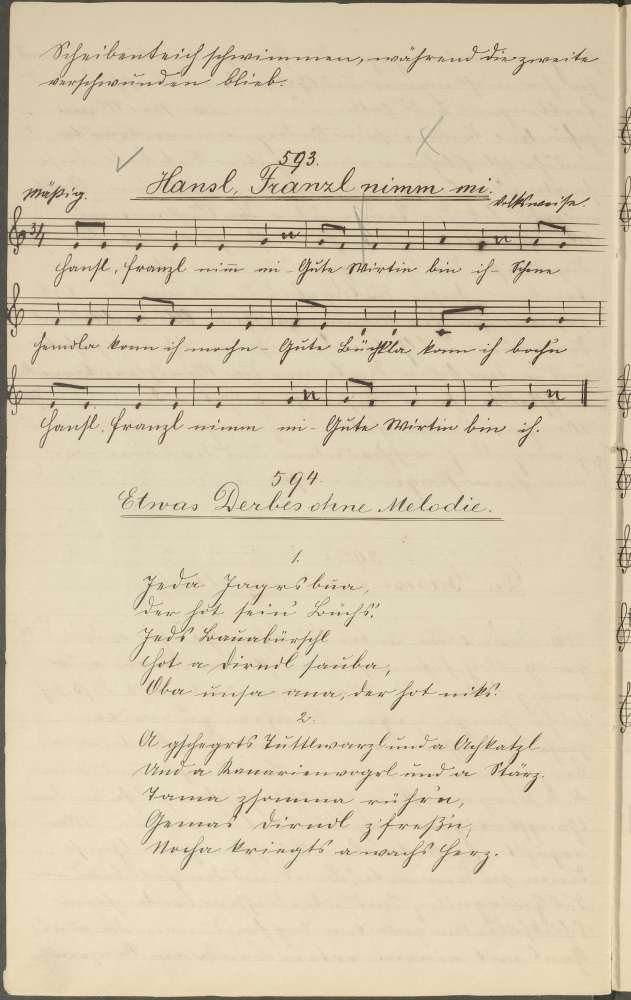 Scheibenteich schwimmen, während die zweite
verschwunden blieb.
593.
Hansl, Franzl nimm mi.
Mäßig.
Volksweise.
3/4
Hansl, Franzl nim̄ mi - Gute Wirtin bin ih - Schene
Hemdla kann ih mochn - Gute Büchtla kann ih bochn
Hansl, Franzl nimm mi - Gute Wirtin bin ih.
594.
Etwas Derbes ohne Melodie.
1.
Jeda Jagrsbua,
Der hot sein Büchs.
Jeds Bauabürschl
Hot a Dirndl sauba,
Oba unsa ana, der hot niks.
2.
A gschegrts Tuttlwarzl und a Achkatzl
Und a Kanarienvogrl und a Stärz.
Tama zsomma rühr'n,
Gemas Dirndl z'freßn,
Nocha kriegts a wachs Herz.